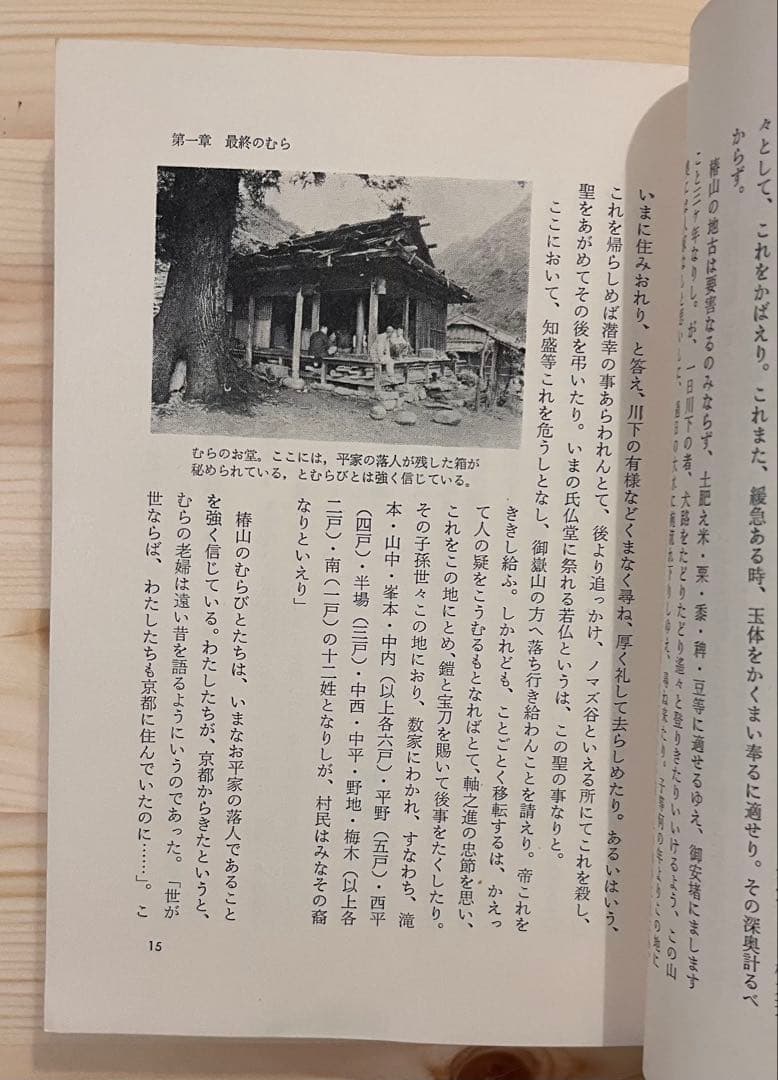 々として、これをかばえり。これまた、緩急ある時、玉体をかくまい奉るに適せり。その深奥計るべ
からず。
椿山の地古は要害なるのみならず、土肥え米・粟・黍・稗・豆等に適せるゆえ、御安堵にまします
こと三ケ年なりし。が、一日川下の者、犬路をたどりたどり遙々と登りきたりいいけるよう、この山
第一章 最終のむら
いまに住みおれり、と答え、川下の有様などくまなく尋ね、厚く礼して去らしめたり。あるいはいう、
これを帰らしめば潜幸の事あらわれんとて、後より追っかけ、ノマズ谷といえる所にてこれを殺し、
聖をあがめてその後を弔いたり。いまの氏仏堂に祭れる若仏というは、この聖の事なりと。
ここにおいて、知盛等これを危うしとなし、御嶽山の方へ落ち行き給わんことを請えり。帝これを
ききし給ふ。しかれども、ことごとく移転するは、かえっ
て人の疑をこうむるもとなればとて、軸之進の忠節を思い、
これをこの地にとめ、鎧と宝刀を賜いて後事をたくしたり。
その子孫世々この地におり、数家にわかれ、すなわち、滝
本・山中・峯本・中内（以上各六戸）・平野（五戸）・西平
（四戸）・半場（三戸）・中西・中平・野地・梅木（以上各
二戸）・南（一戸）の十二姓となりしが、村民はみなその裔
なりといえり」
むらのお堂。ここには，平家の落人が残した箱が
秘められている，とむらびとは強く信じている。
椿山のむらびとたちは、いまなお平家の落人であること
を強く信じている。わたしたちが、京都からきたというと、
むらの老婦は遠い昔を語るようにいうのであった。「世が
世ならば、わたしたちも京都に住んでいたのに……」。こ
15